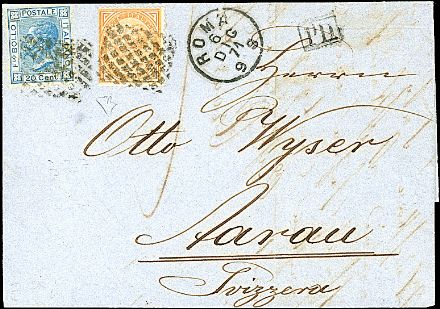 POSTALE
ITALIANO
20 Cent
ROMA
6 DG 71
9 S
PD
Herrn
Otto Wyser
Aarau
Svizzera